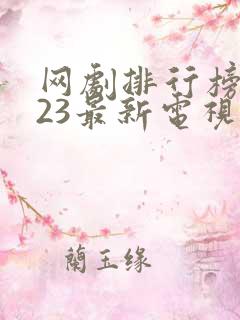 网劇排行榜
23最新電視
蘭玉缘